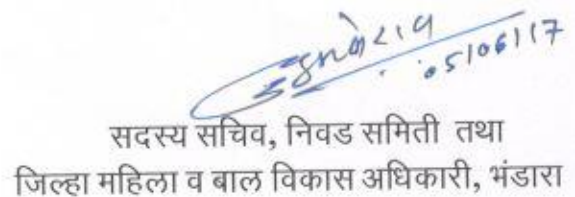 05/06/117
सदस्य सचिव, निवड समिती तथा
जिल्हा महिला व बाल विकास अधिकारी, भंडारा